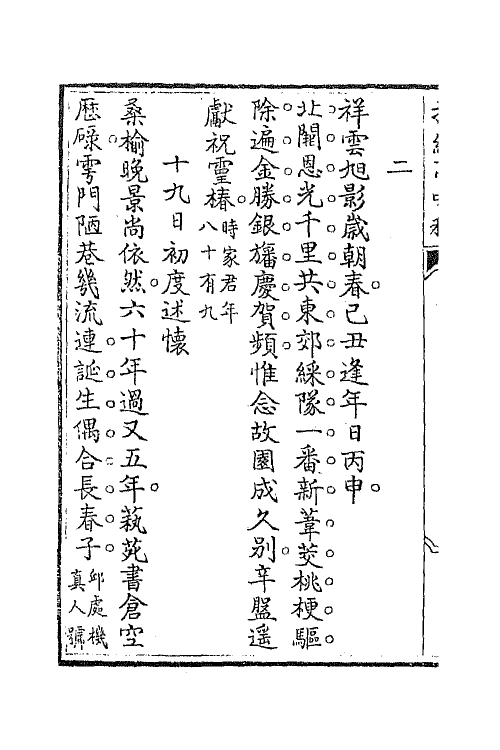 二
祥雲旭影歲朝春。己丑逢年日丙申。
北闕恩光千里共東郊綵隊一番新葦茭桃梗驅
除遍金勝銀旛慶賀頻惟念故園成久別辛盤遥
獻祝靈椿。時家君年八十有九
十九日初度述懷
桑榆晚景尚依然。六十年過又五年。蓺苑書倉空
歷碌雩門陋巷幾流連誕生偶合長春子邱處機真人號